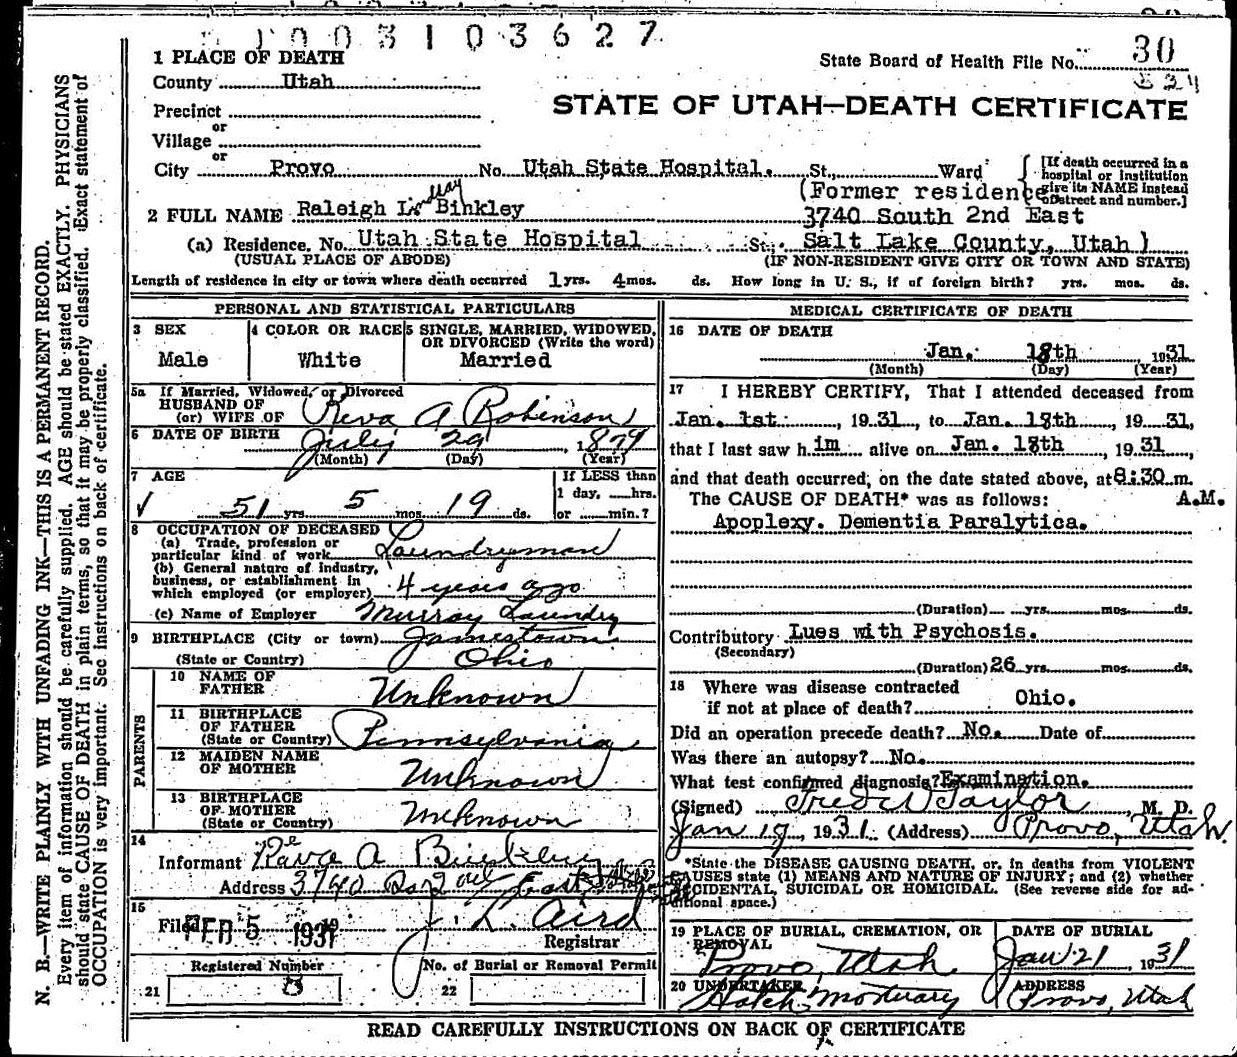 1003103627
1 PLACE OF DEATH
State Board of Health File No. 30
County Utah
STATE OF UTAH—DEATH CERTIFICATE
Precinct
or
Village
or
City Provo No. Utah State Hospital. St., Ward
[If death occurred in a hospital or institution give its NAME instead of street and number.]
(Former residence
2 FULL NAME Raleigh Lindlay Binkley 3740 South 2nd East
(a) Residence, No. Utah State Hospital St. Salt Lake County, Utah)
(USUAL PLACE OF ABODE) (IF NON-RESIDENT GIVE CITY OR TOWN AND STATE)
Length of residence in city or town where death occurred 1 yrs. 4 mos. ds. How long in U. S., if of foreign birth? yrs. mos. ds.
PERSONAL AND STATISTICAL PARTICULARS
3 SEX 4 COLOR OR RACE 5 SINGLE, MARRIED, WIDOWED, OR DIVORCED (Write the word)
Male White Married
5a If Married, Widowed, or Divorced
HUSBAND OF
(or) WIFE OF Reva A Robinson
6 DATE OF BIRTH July 29, 1879
(Month) (Day) (Year)
7 AGE If LESS than
51 yrs. 5 mos. 19 ds. 1 day, hrs.
or min.?
8 OCCUPATION OF DECEASED
(a) Trade, profession or
particular kind of work Laundryman
(b) General nature of industry,
business, or establishment in
which employed (or employer) 4 years ago
(c) Name of Employer Murray Laundry
9 BIRTHPLACE (City or town) Jamestown
(State or Country) Ohio
PARENTS
10 NAME OF
FATHER Unknown
11 BIRTHPLACE
OF FATHER
(State or Country) Pennsylvania
12 MAIDEN NAME
OF MOTHER Unknown
13 BIRTHPLACE
OF MOTHER
(State or Country) Unknown
14
Informant Reva A Binkley
Address 3740 So 2nd East
15
Filed FEB 5 1931 J. L. Aird
Registrar
Registered Number No. of Burial or Removal Permit
21 3 22
MEDICAL CERTIFICATE OF DEATH
16 DATE OF DEATH
Jan. 18th, 1931
(Month) (Day) (Year)
17 I HEREBY CERTIFY, That I attended deceased from
Jan. 1st, 1931, to Jan. 18th, 1931,
that I last saw him alive on Jan. 18th, 1931
and that death occurred, on the date stated above, at 8:30 m.
The CAUSE OF DEATH* was as follows: A.M.
Apoplexy. Dementia Paralytica.
(Duration) yrs. mos. ds.
Contributory Lues with Psychosis.
(Secondary)
(Duration) 26 yrs. mos. ds.
18 Where was disease contracted
if not at place of death? Ohio.
Did an operation precede death? No. Date of
Was there an autopsy? No.
What test confirmed diagnosis? Examination.
(Signed) Fred W Taylor M. D.
Jan 19, 1931 (Address) Provo, Utah.
*State the DISEASE CAUSING DEATH, or, in deaths from VIOLENT
CAUSES state (1) MEANS AND NATURE OF INJURY; and (2) whether
ACCIDENTAL, SUICIDAL OR HOMICIDAL. (See reverse side for ad-
ditional space.)
19 PLACE OF BURIAL, CREMATION, OR DATE OF BURIAL
REMOVAL
Provo, Utah Jan 21 1931
20 UNDERTAKER ADDRESS
Hatch Mortuary Provo, Utah
READ CAREFULLY INSTRUCTIONS ON BACK OF CERTIFICATE
N. B.—WRITE PLAINLY WITH UNFADING INK—THIS IS A PERMANENT RECORD.
Every item of information should be carefully supplied. AGE should be stated EXACTLY. PHYSICIANS
should state CAUSE OF DEATH in plain terms, so that it may be properly classified. Exact statement of
OCCUPATION is very important. See instructions on back of certificate.